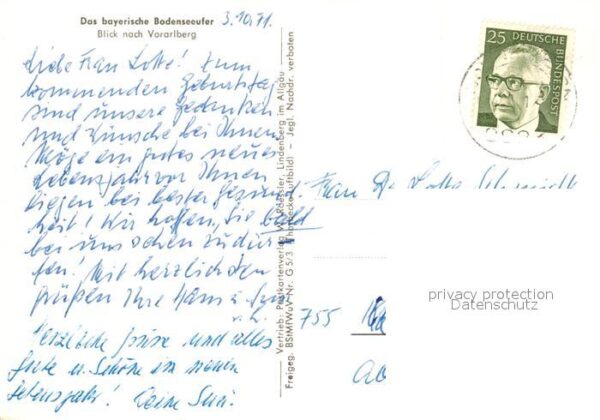 Das bayerische Bodenseeufer
Blick nach Vorarlberg
3.10.71.
Liebe Frau Lotte! Zum
kommenden Geburtstag
sind unsere Gedanken
und Wünsche bei Ihnen.
Möge ein gutes neues
Lebensjahr vor Ihnen
liegen bei bester Gesund-
heit! Wir hoffen, Sie bald
bei uns sehen zu dür-
fen! Mit herzlichsten
Grüßen Ihre
Herzliche Grüße und alles
Gute u. Schöne im neuen
Lebensjahr! Deine
Vertrieb: Postkartenverlag Lindenberg im Allgäu
Freigeg. BStMfWuV-Nr. G 5/3 (Luftbild) Jegl. Nachdr. verboten
25 DEUTSCHE BUNDESPOST
Frau Dr. Lotte
755
privacy protection
Datenschutz